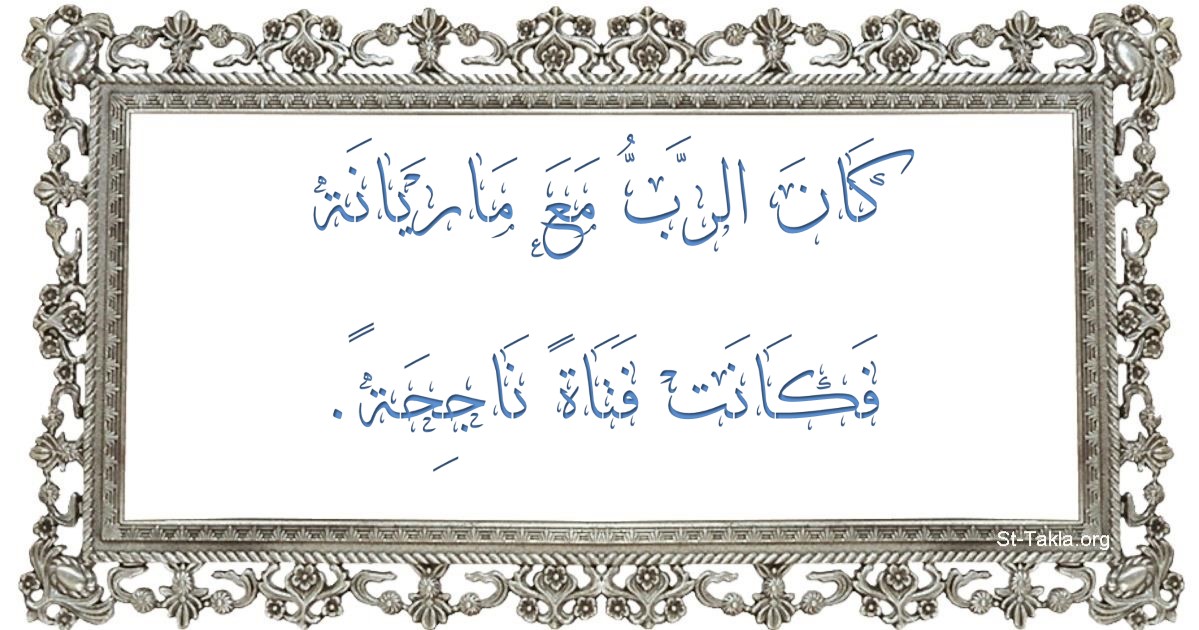 كَانَ الرَّبُّ مَعَ مَارِيَانَة
فَكَانَت فَتَاةً نَاجِحَةً.
St-Takla.org